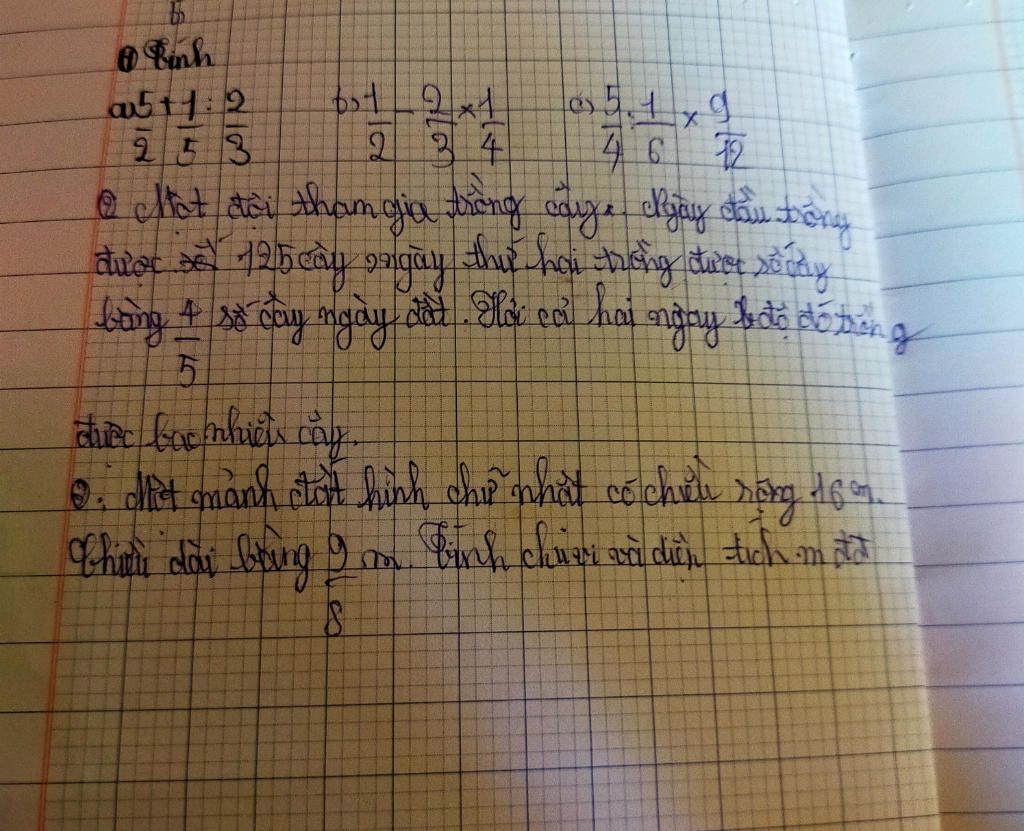 ① Tính
a, 5/2 + 1/5 : 2/3 b, 1/2 - 2/3 × 1/4 c, 5/4 : 1/6 × 9/12
② Một đội tham gia trồng cây. Ngày đầu trồng
được 125 cây ngày thứ hai trồng được số cây
bằng 4/5 số cây ngày đầt. Hỏi cả hai ngày độ đó trồng
được bao nhiêu cây.
③: Một mảnh đất hình chữ nhật có chiều rộng 16 m.
Chiều dài bằng 9/8 m. Tính chu vi và diện tích m đất